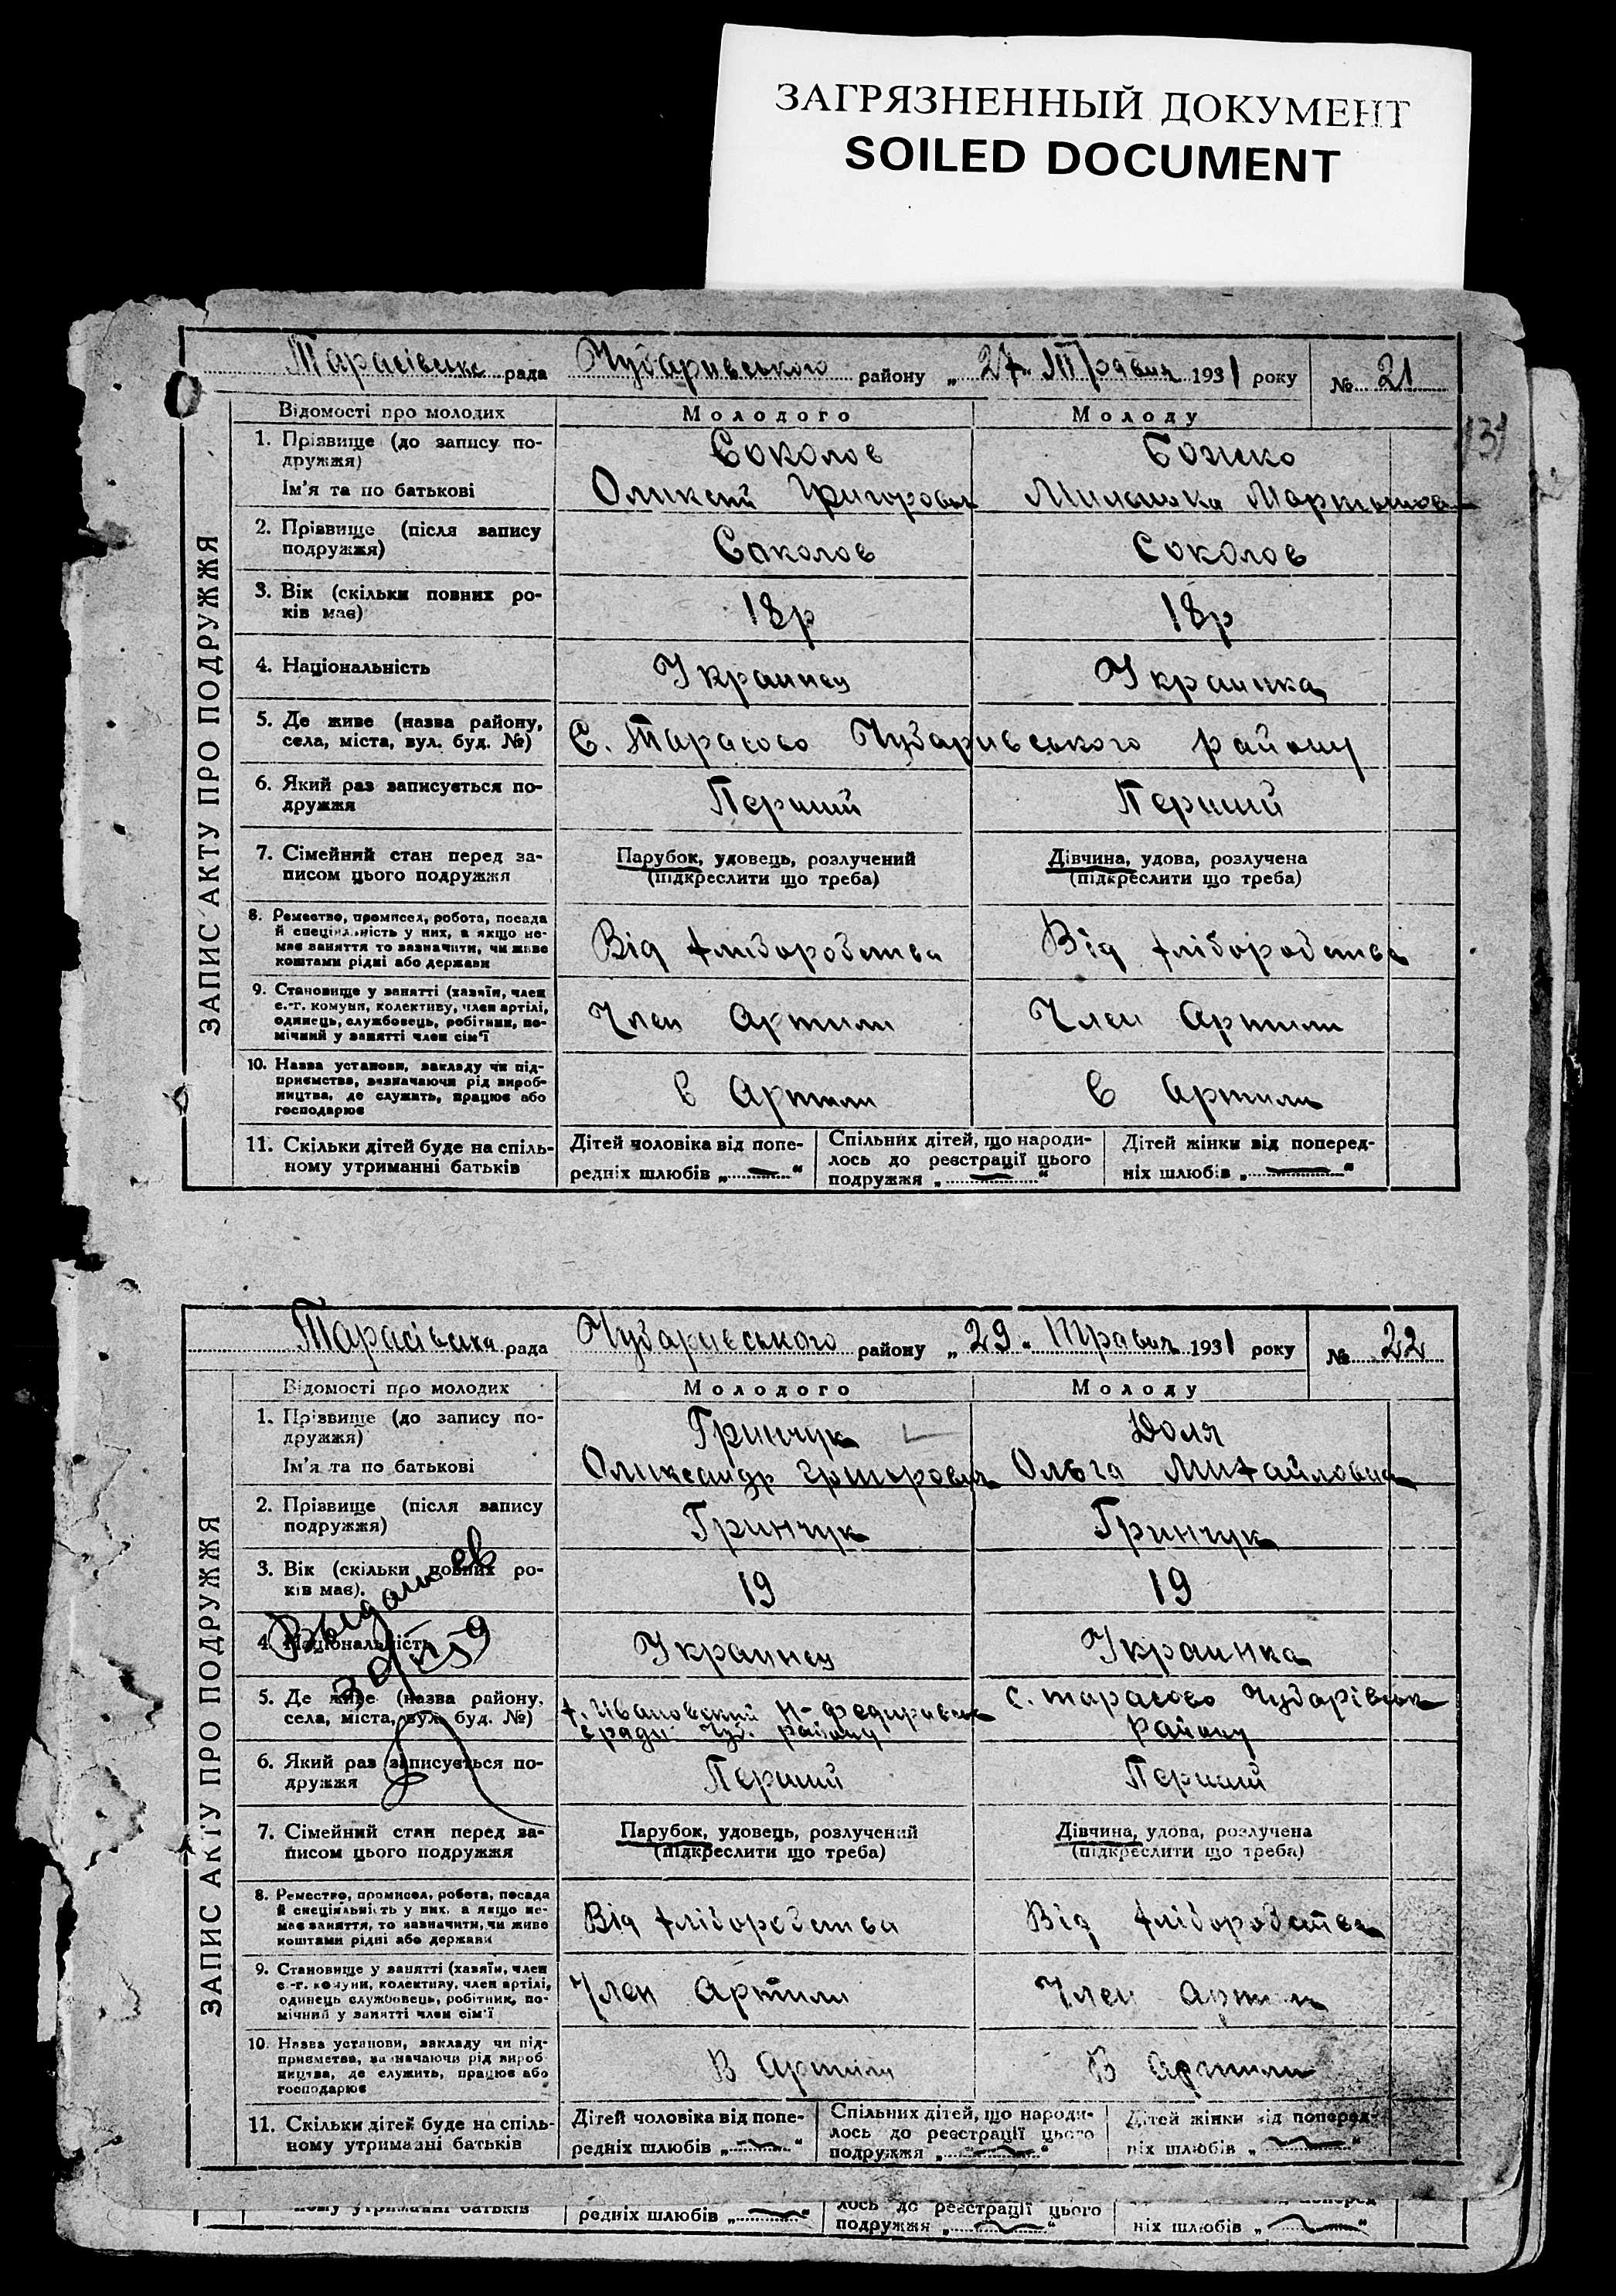 ЗАГРЯЗНЕННЫЙ ДОКУМЕНТ
SOILED DOCUMENT
Тарасівська рада Чубарівського району „27" Травня 1931 року № 21
131
ЗАПИС АКТУ ПРО ПОДРУЖЖЯ
Відомості про молодих Молодого Молоду
1. Прізвище (до запису по-
дружжя) Соколов Божко
Ім'я та по батькові Олихсій Григоровіч
2. Прізвище (після запису
подружжя) Соколов Соколов
3. Вік (скільки повних ро-
ків має) 18р 18р
4. Національність Украинец Украинка
5. Де живе (назва району,
села, міста, вул. буд. №) С. Тарасово Чубаривського району
6. Який раз записується по-
дружжя Перший Перший
7. Сімейний стан перед за-
писом цього подружжя
Парубок, удовець, розлучений Дівчина, удова, розлучена
(підкреслити що треба) (підкреслити що треба)
8. Ремество, промисел, робота, посада
й спеціяльність у них, а якщо не-
має заняття то зазначити, чи живе
коштами рідні або держави
Від хліборобства Від хліборобства
9. Становище у занятті (хазяїн, член
с.-г. комуни, колективу, член артілі,
одинець, службовець, робітник, по-
мічний у занятті член сім'ї
Член Артили Член Артили
10. Назва установи, закладу чи під-
приємства, зазначаючи рід вироб-
ництва, де служить, працює або
господарює
в Артили в Артили
11. Скільки дітей буде на спіль-
ному утриманні батьків
Дітей чоловіка від попе-
редніх шлюбів „ — "
Спільних дітей, що народи-
лось до реєстрації цього
подружжя „ — "
Дітей жінки від поперед-
ніх шлюбів „ — "
Тарасівська рада Чубаривського району „29" Травня 1931 року № 22
ЗАПИС АКТУ ПРО ПОДРУЖЖЯ
Відомості про молодих Молодого Молоду
1. Прізвище (до запису по-
дружжя) Гринчук Доля
Ім'я та по батькові Олександр Григоровіч Ольга Михайловна
2. Прізвище (після запису
подружжя) Гринчук Гринчук
3. Вік (скільки повних ро-
ків має). 19 19
4. Національність Украинец Украинка
5. Де живе (назва району,
села, міста, вул. буд. №)
х. Ивановский Н-Федоривськ
с ради Чуб. району
с. тарасово Чубарівськ
району
6. Який раз записується по-
дружжя Перший Перший
7. Сімейний стан перед за-
писом цього подружжя
Парубок, удовець, розлучений Дівчина, удова, розлучена
(підкреслити що треба) (підкреслити що треба)
8. Ремество, промисел, робота, посада
й спеціяльність у них, а якщо не-
має заняття, то зазначити, чи живе
коштами рідні або держави
Від хліборобства Від хліборобства
9. Становище у занятті (хазяїн, член
с.-г. комуни, колективу, член артілі,
одинець службовець, робітник, по-
мічний у занятті член сім'ї
Член Артили Член Артили
10. Назва установи, закладу чи під-
приємства, зазначаючи рід вироб
ництва, де служить, працює або
господарює
В Артили В Артили
11. Скільки дітей буде на спіль-
ному утриманні батьків
Дітей чоловіка від попе-
редніх шлюбів „ — "
Спільних дітей, що народи-
лось до реєстрації цього
подружжя „ — "
Дітей жінки від поперед-
ніх шлюбів „ — "
ному утриманні батьків
редніх шлюбів „ — "
лось до реєстрації цього
подружжя „ — "
ніх шлюбів „ — "